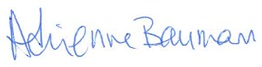 Adrienne Bauman